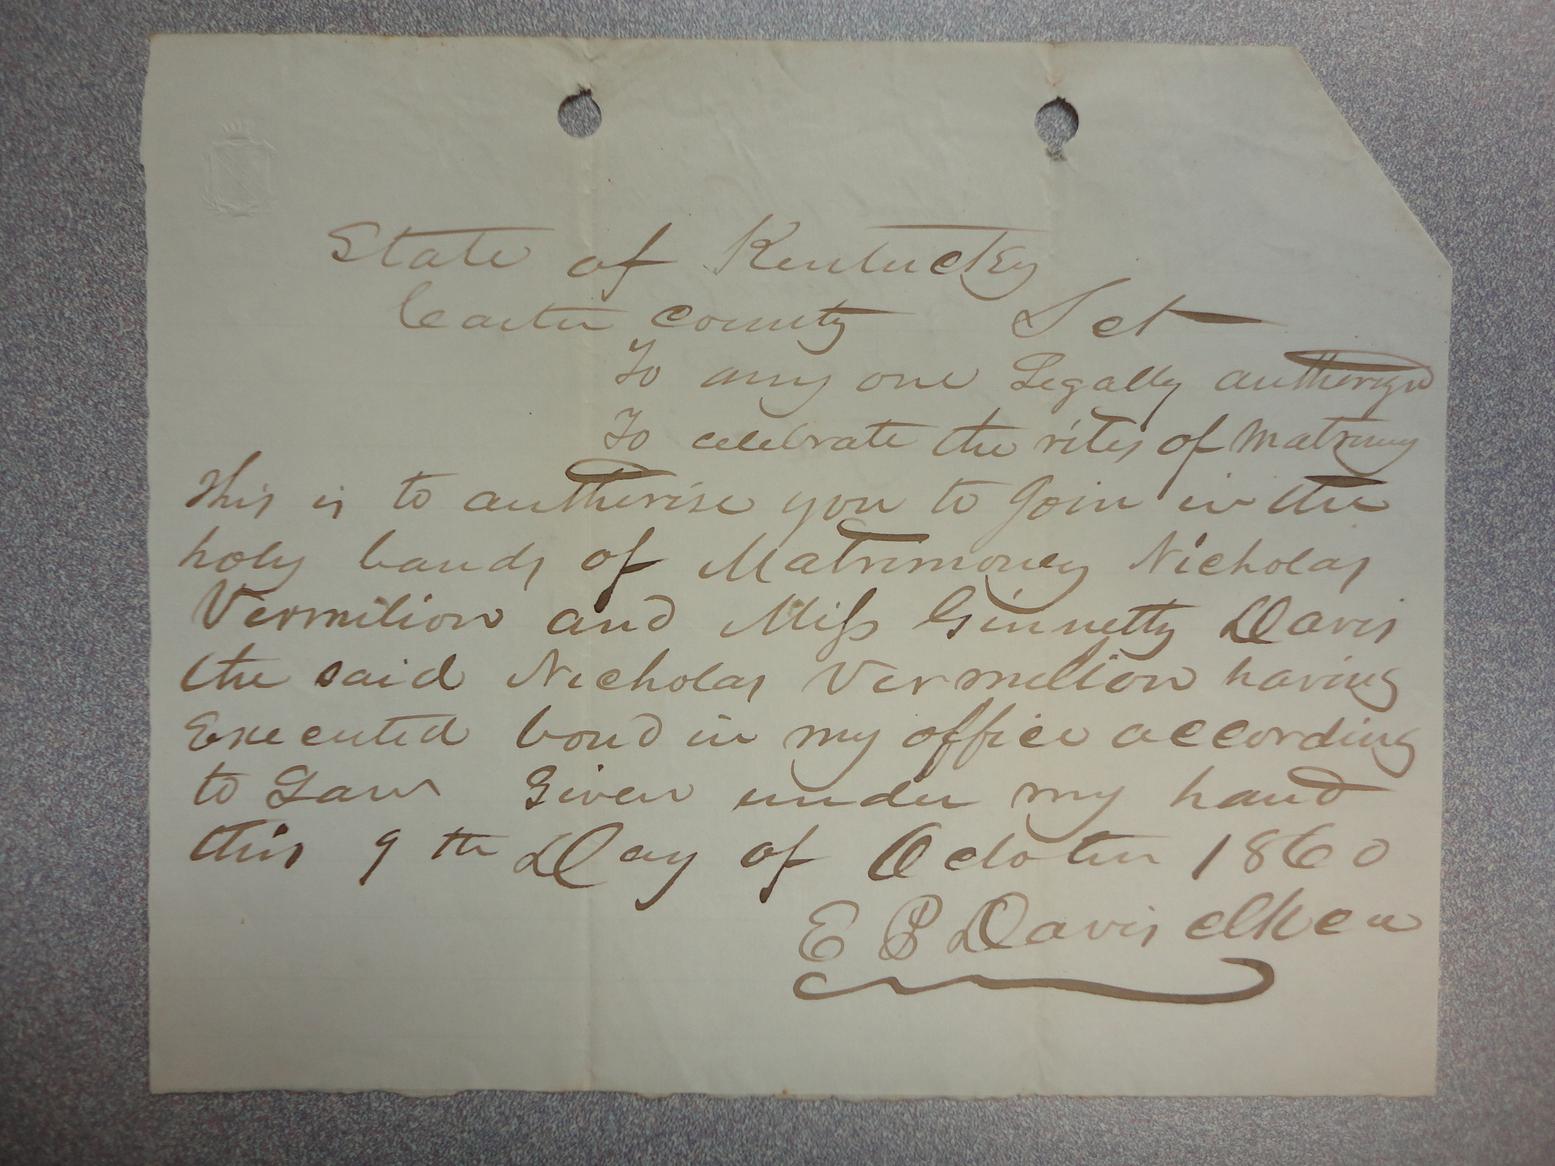 State of Kentucky
Carter county Sct
To any one Legally autherize
To celebrate the rites of Matrimony
This is to autherise you to Join in the
holy bands of Matrimoney Nicholas
Vermilion and Miss Ginnetty Davis
the said Nicholas Vermilion having
Executed bond in my office according
to Law Given under my hand
this 9th Day of October 1860
E B Davis